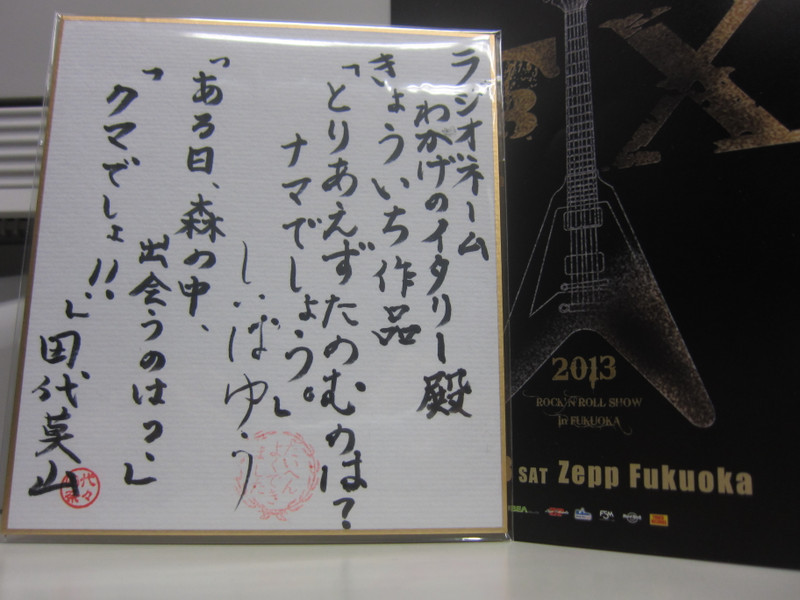 ラジオネーム
わかげのイタリー殿
きょういち作品
「とりあえずたのむのは?
ナマでしょう。」
しいばゆう
「ある日、森の中、
出会うのは?」
「クマでしょ!!」
田代莫山
X
2013
ROCK'N ROLL SHOW
In FUKUOKA
SAT Zepp Fukuoka